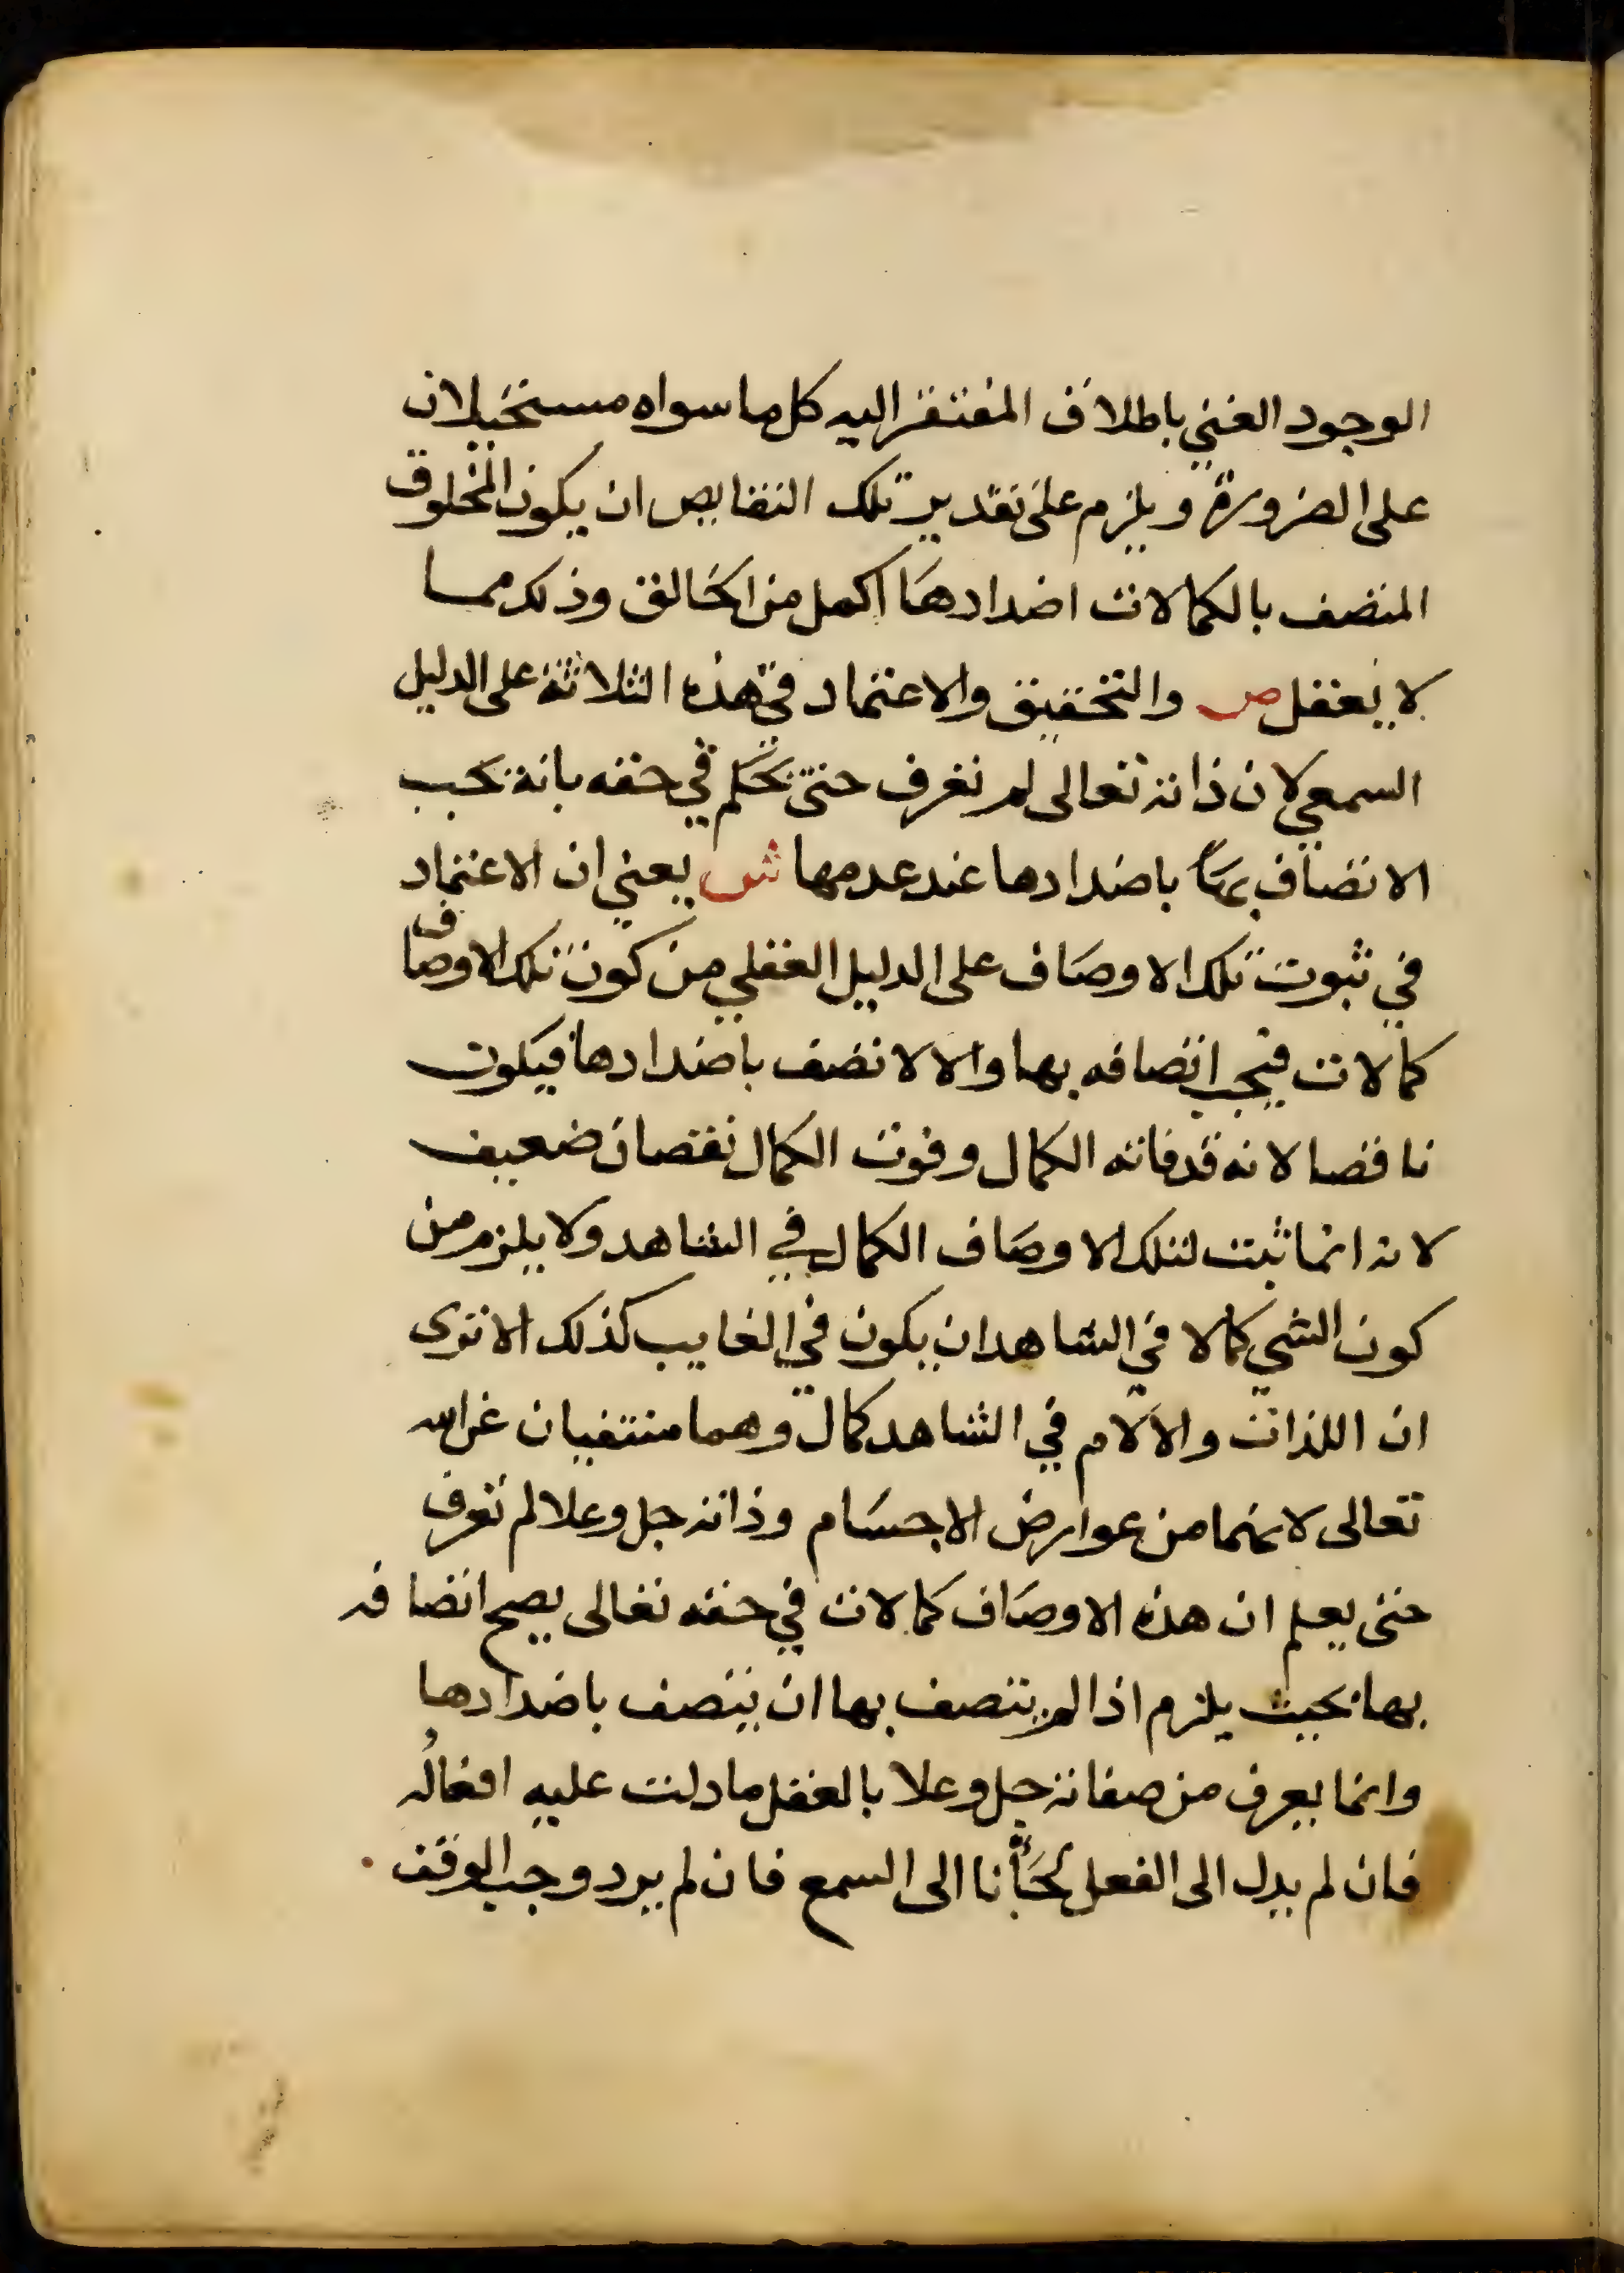 الوجود الغني باطلاق المفتقر اليه كل ما سواه مستحيلان
على الضرورة ويلزم على تقدير تلك النقايص ان يكون المخلوق
المتصف بالكمالات اضدادها اكمل من الخالق وذلك مما
لا يعقل ص والتحقيق والاعتماد في هذه الثلاثة على الدليل
السمعي لان ذاته تعالى لم تعرف حتى نحكم في حقه بانه يجب
الاتصاف بها باضدادها عند عدمها ش يعني ان الاعتماد
في ثبوت تلك الاوصاف على الدليل العقلي من كون تلك الاوصاف
كمالات فيجب اتصافه بها والا لاتصف باضدادها فيكون
ناقصا لانه قد فاته الكمال وفوت الكمال نقصان ضعيف
لانه انما ثبت لتلك الاوصاف الكمال في الشاهد ولا يلزم من
كون الشي كمالا في الشاهد ان يكون في الغايب كذلك الا ترى
ان اللذات والالام في الشاهد كمال وهما منتفيان عن الله
تعالى لانهما من عوارض الاجسام وذاته جل وعلا لم تعرف
حتى يعلم ان هذه الاوصاف كمالات في حقه تعالى يصح اتصافه
بها بحيث يلزم اذا لم يتصف بها ان يتصف باضدادها
وانما يعرف من صفاته جل وعلا بالعقل ما دلت عليه افعاله
فان لم يدل الى الفعل لجأنا الى السمع فان لم يرد وجب الوقف